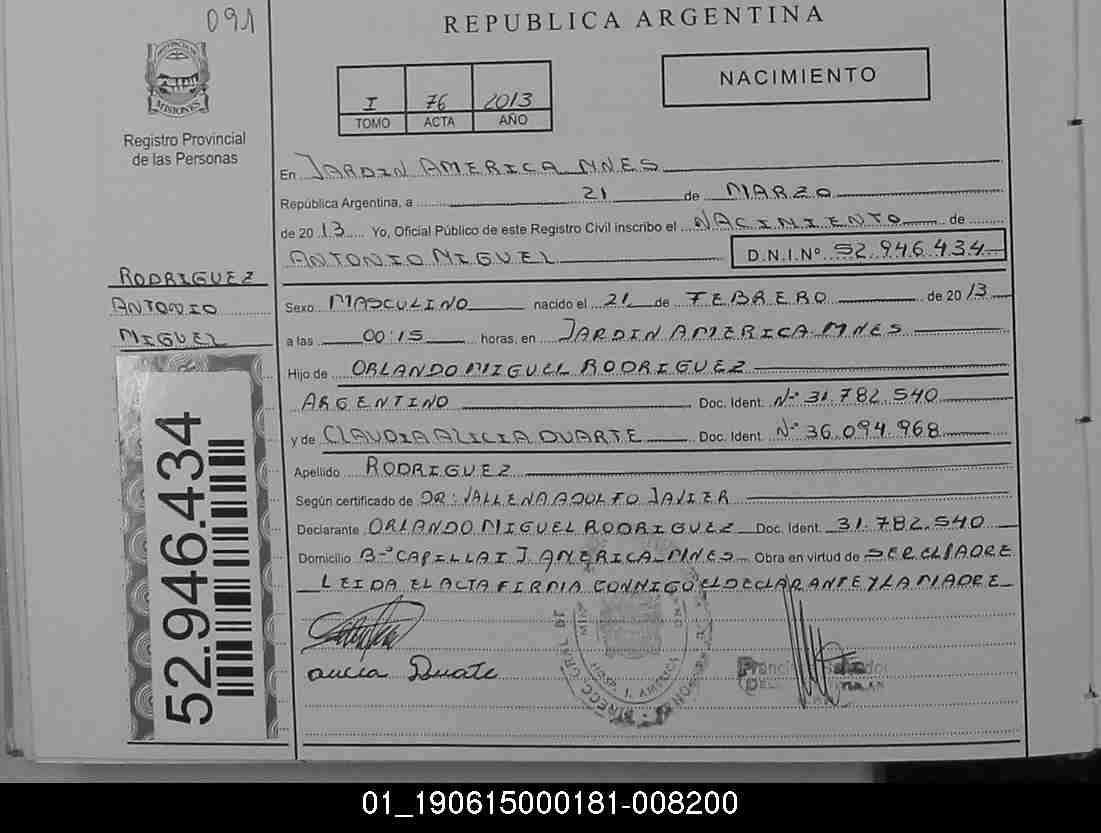 091
REPUBLICA ARGENTINA
PROVINCIA DE
MISIONES
Registro Provincial
de las Personas
NACIMIENTO
I 76 2013
TOMO ACTA AÑO
En JARDIN AMERICA MNES
República Argentina, a 21 de MARZO
de 2013 Yo, Oficial Público de este Registro Civil inscribo el NACIMIENTO de
ANTONIO MIGUEL D.N.I.Nº 52.946.434
RODRIGUEZ
ANTONIO
MIGUEL
Sexo MASCULINO nacido el 21 de FEBRERO de 2013
a las 00:15 horas, en JARDIN AMERICA MNES
Hijo de ORLANDO MIGUEL RODRIGUEZ
ARGENTINO Doc. Ident. Nº 31.782.540
y de CLAUDIA ALICIA DUARTE Doc. Ident. Nº 36.094.968
Apellido RODRIGUEZ
Según certificado de DR: VALLENA ADOLFO JAVIER
Declarante ORLANDO MIGUEL RODRIGUEZ Doc. Ident. 31.782.540
Domicilio Bº CAPILLA I J. AMERICA MNES Obra en virtud de SER EL PADRE
LEIDA EL ACTA FIRMA CONMIGO EL DECLARANTE Y LA MADRE
52.946.434
alicia Duarte
HOSP. J. AMERICA
01_190615000181-008200